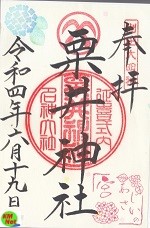 奉拝
延喜式内
粟井神社
名神大社
令和四年六月十九日